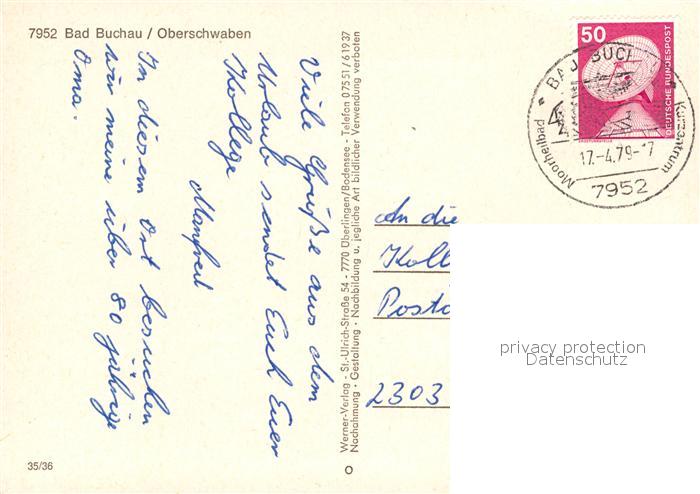 7952 Bad Buchau / Oberschwaben
Viele Grüße aus dem
Urlaub sendet Euch Euer
Kollege
Manfred
In diesem Ort besuchen
wir meine über 80 jährige
Oma.
35/36
Werner-Verlag - St.-Ulrich-Straße 54 - 7770 Überlingen/Bodensee - Telefon 07551/61937
Nachahmung · Gestaltung · Nachbildung u. jegliche Art bildlicher Verwendung verboten
50
DEUTSCHE BUNDESPOST
BAD BUCH
Moorheilbad
Kurzentrum
17.-4.79-17
7952
An die
Koll
Posta
2303
privacy protection
Datenschutz